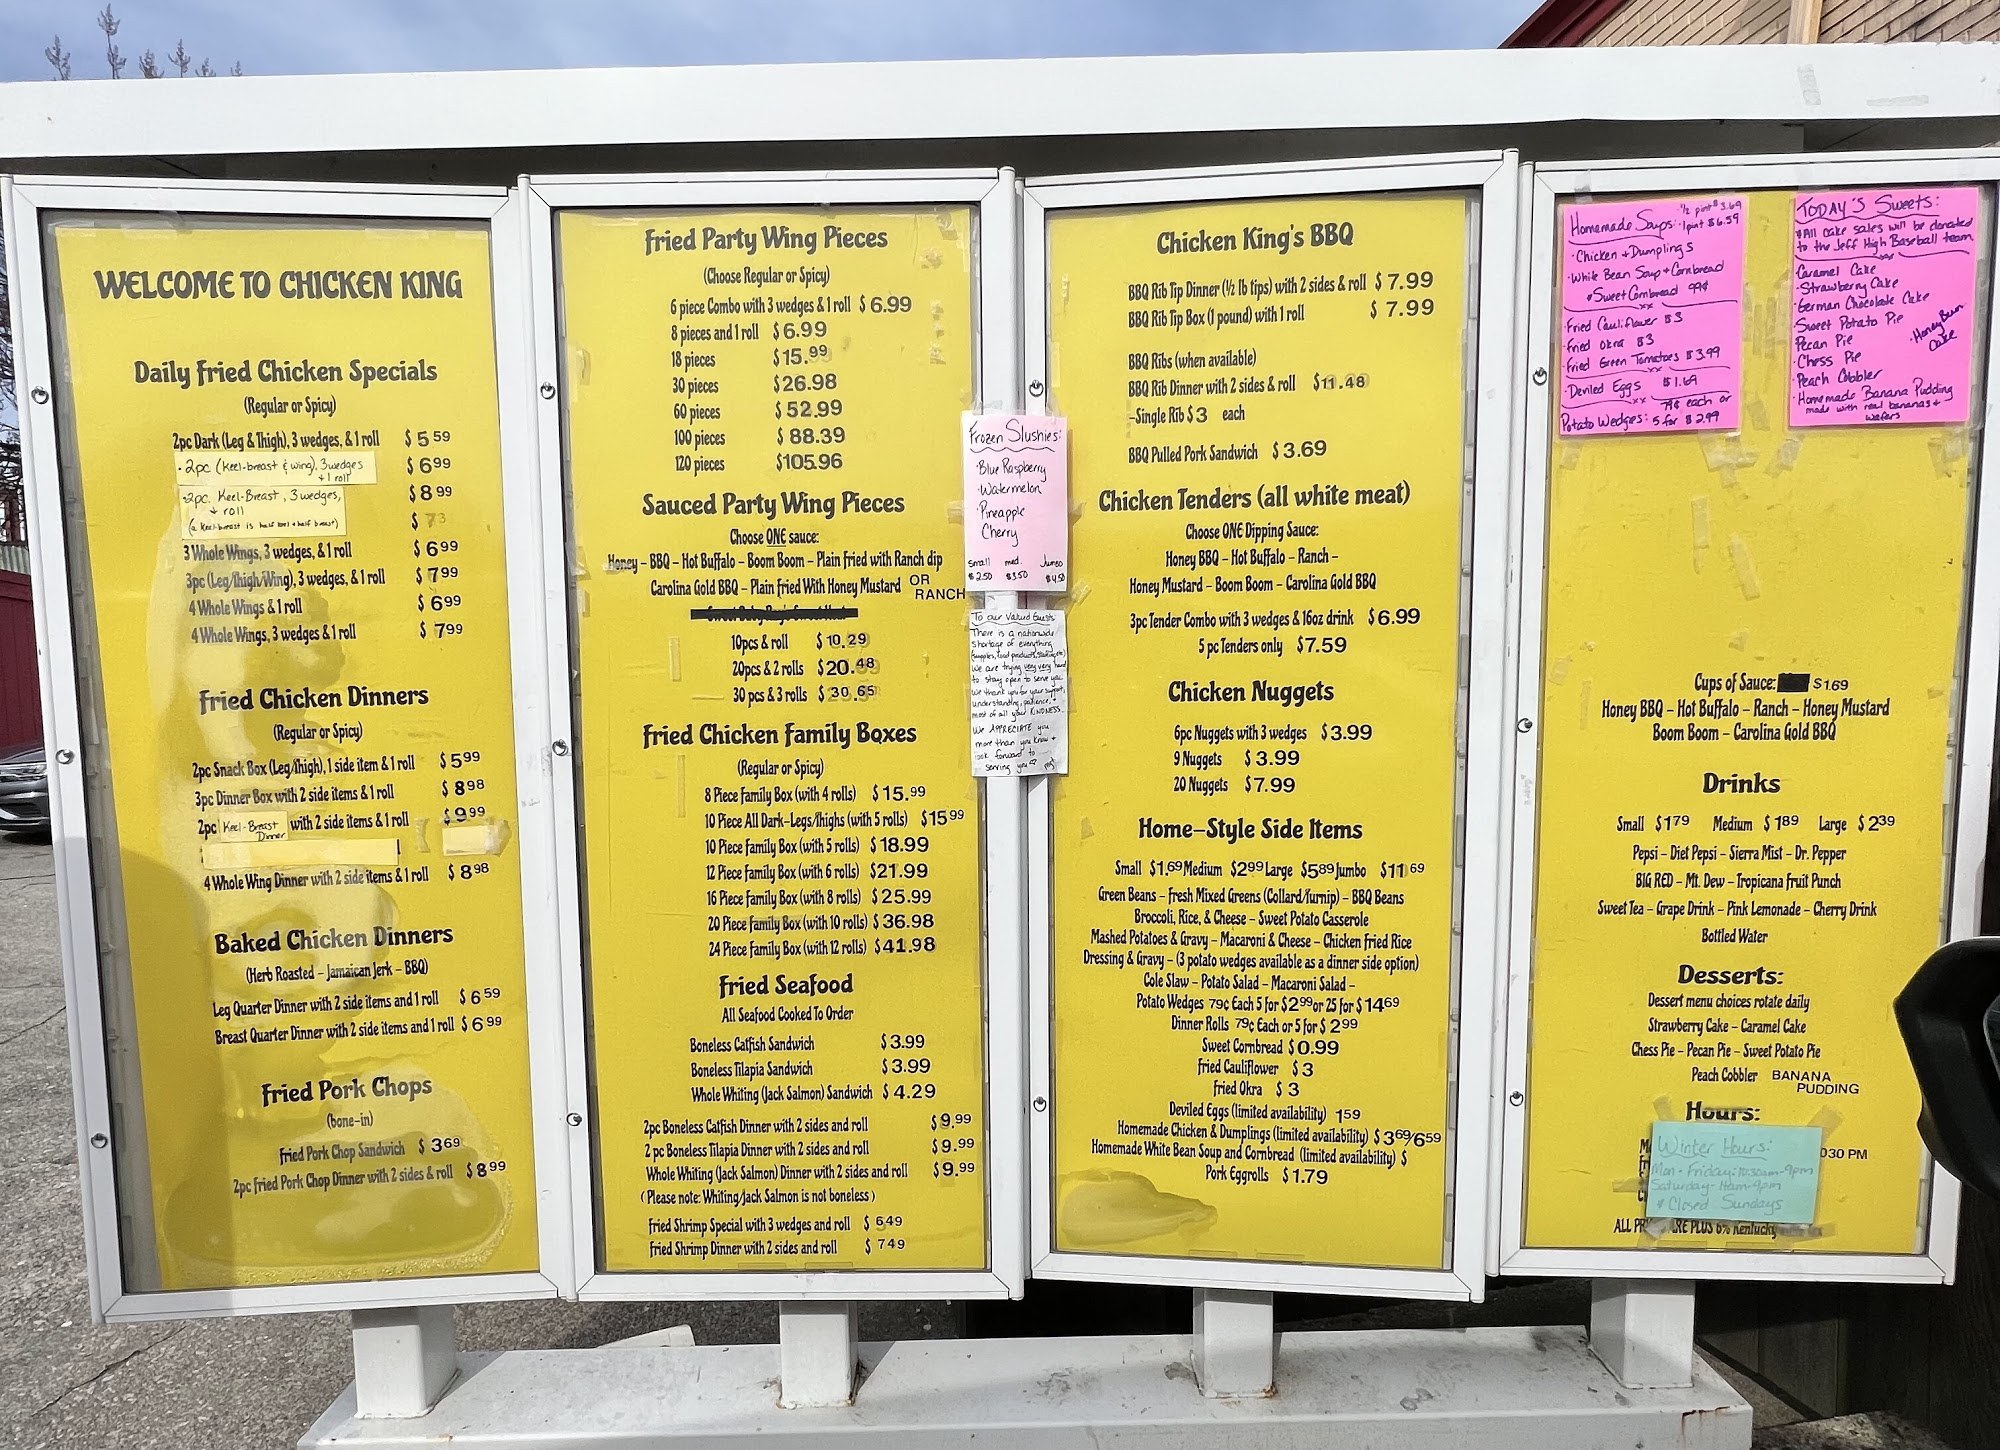 WELCOME TO CHICKEN KING
Daily Fried Chicken Specials
(Regular or Spicy)
2pc Dark (Leg & Thigh), 3 wedges, & 1 roll $5.59
· 2pc (Keel-breast & wing), 3 wedges + 1 roll $6.99
· 2pc. Keel-Breast, 3 wedges, + roll $8.99
(a Keel-breast is half keel & half breast)
3 Whole Wings, 3 wedges, & 1 roll $6.99
3pc (Leg/Thigh/Wing), 3 wedges, & 1 roll $7.99
4 Whole Wings & 1 roll $6.99
4 Whole Wings, 3 wedges & 1 roll $7.99
Fried Chicken Dinners
(Regular or Spicy)
2pc Snack Box (Leg/Thigh), 1 side item & 1 roll $5.99
3pc Dinner Box with 2 side items & 1 roll $8.98
2pc Keel-Breast Dinner with 2 side items & 1 roll $9.99
4 Whole Wing Dinner with 2 side items & 1 roll $8.98
Baked Chicken Dinners
(Herb Roasted – Jamaican Jerk – BBQ)
Leg Quarter Dinner with 2 side items and 1 roll $6.59
Breast Quarter Dinner with 2 side items and 1 roll $6.99
Fried Pork Chops
(bone-in)
Fried Pork Chop Sandwich $3.69
2pc Fried Pork Chop Dinner with 2 sides & roll $8.99
Fried Party Wing Pieces
(Choose Regular or Spicy)
6 piece Combo with 3 wedges & 1 roll $6.99
8 pieces and 1 roll $6.99
18 pieces $15.99
30 pieces $26.98
60 pieces $52.99
100 pieces $88.39
120 pieces $105.96
Sauced Party Wing Pieces
Choose ONE sauce:
Honey – BBQ – Hot Buffalo – Boom Boom – Plain fried with Ranch dip
Carolina Gold BBQ – Plain Fried With Honey Mustard OR RANCH
10pcs & roll $10.29
20pcs & 2 rolls $20.48
30 pcs & 3 rolls $30.65
Fried Chicken Family Boxes
(Regular or Spicy)
8 Piece Family Box (with 4 rolls) $15.99
10 Piece All Dark-Legs/Thighs (with 5 rolls) $15.99
10 Piece Family Box (with 5 rolls) $18.99
12 Piece Family Box (with 6 rolls) $21.99
16 Piece Family Box (with 8 rolls) $25.99
20 Piece Family Box (with 10 rolls) $36.98
24 Piece Family Box (with 12 rolls) $41.98
Fried Seafood
All Seafood Cooked To Order
Boneless Catfish Sandwich $3.99
Boneless Tilapia Sandwich $3.99
Whole Whiting (Jack Salmon) Sandwich $4.29
2pc Boneless Catfish Dinner with 2 sides and roll $9.99
2 pc Boneless Tilapia Dinner with 2 sides and roll $9.99
Whole Whiting (Jack Salmon) Dinner with 2 sides and roll $9.99
(Please note: Whiting/Jack Salmon is not boneless)
Fried Shrimp Special with 3 wedges and roll $6.49
Fried Shrimp Dinner with 2 sides and roll $7.49
Frozen Slushies:
· Blue Raspberry
· Watermelon
· Pineapple
Cherry
small med. Jumbo
$2.50 $3.50 $4.50
To our Valued Guests
There is a nationwide
shortage of everything
(supplies, food products, staffing, etc)
We are trying very very hard
to stay open to serve you.
We thank you for your support,
understanding, patience, +
most of all your KINDNESS.
We APPRECIATE you
more than you know +
look forward to
serving you
Chicken King's BBQ
BBQ Rib Tip Dinner (½ lb tips) with 2 sides & roll $7.99
BBQ Rib Tip Box (1 pound) with 1 roll $7.99
BBQ Ribs (when available)
BBQ Rib Dinner with 2 sides & roll $11.48
-Single Rib $3 each
BBQ Pulled Pork Sandwich $3.69
Chicken Tenders (all white meat)
Choose ONE Dipping Sauce:
Honey BBQ – Hot Buffalo – Ranch –
Honey Mustard – Boom Boom – Carolina Gold BBQ
3pc Tender Combo with 3 wedges & 16oz drink $6.99
5 pc Tenders only $7.59
Chicken Nuggets
6pc Nuggets with 3 wedges $3.99
9 Nuggets $3.99
20 Nuggets $7.99
Home-Style Side Items
Small $1.69 Medium $2.99 Large $5.89 Jumbo $11.69
Green Beans – Fresh Mixed Greens (Collard/Turnip) – BBQ Beans
Broccoli, Rice, & Cheese – Sweet Potato Casserole
Mashed Potatoes & Gravy – Macaroni & Cheese – Chicken Fried Rice
Dressing & Gravy – (3 potato wedges available as a dinner side option)
Cole Slaw – Potato Salad – Macaroni Salad –
Potato Wedges 79¢ Each 5 for $2.99 or 25 for $14.69
Dinner Rolls 79¢ Each or 5 for $2.99
Sweet Cornbread $0.99
Fried Cauliflower $3
Fried Okra $3
Deviled Eggs (limited availability) 1.59
Homemade Chicken & Dumplings (limited availability) $3.69/6.59
Homemade White Bean Soup and Cornbread (limited availability) $
Pork Eggrolls $1.79
Homemade Soups: ½ pint $3.69
1 pint $6.59
· Chicken + Dumplings
· White Bean Soup + Cornbread
* Sweet Cornbread 99¢
· Fried Cauliflower $3
· Fried Okra $3
· Fried Green Tomatoes $3.99
· Deviled Eggs $1.69
79¢ each or
Potato Wedges: 5 for $2.99
TODAY'S Sweets:
* All cake sales will be donated
to the Jeff High Baseball team
· Caramel Cake
· Strawberry Cake
· German Chocolate Cake
· Sweet Potato Pie
· Pecan Pie
· Honey Bun Cake
· Chess Pie
· Peach Cobbler
· Homemade Banana Pudding
made with real bananas +
wafers
Cups of Sauce: $1.69
Honey BBQ – Hot Buffalo – Ranch – Honey Mustard
Boom Boom – Carolina Gold BBQ
Drinks
Small $1.79 Medium $1.89 Large $2.39
Pepsi – Diet Pepsi – Sierra Mist – Dr. Pepper
BIG RED – Mt. Dew – Tropicana Fruit Punch
Sweet Tea – Grape Drink – Pink Lemonade – Cherry Drink
Bottled Water
Desserts:
Dessert menu choices rotate daily
Strawberry Cake – Caramel Cake
Chess Pie – Pecan Pie – Sweet Potato Pie
Peach Cobbler BANANA PUDDING
Hours:
Winter Hours:
Mon - Friday: 10:30am-9pm
Saturday- 11am-9pm
* Closed Sundays
030 PM
ALL PR RE PLUS 6% Kentucky